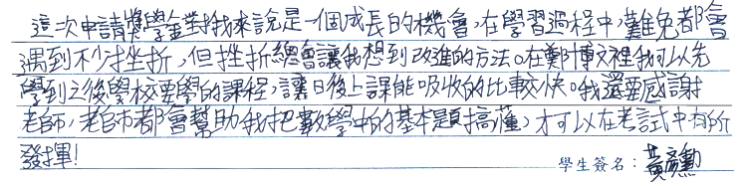 這次申請獎學金對我來說是一個成長的機會,在學習過程中,難免都會
遇到不少挫折,但挫折總會讓我想到改進的方法。在鄭博文裡我可以先
學到之後學校要學的課程,讓日後上課能吸收的比較快。我還要感謝
老師,老師都會幫助我把數學中的基本題搞懂,才可以在考試中有所
發揮!
學生簽名:黃彥勳